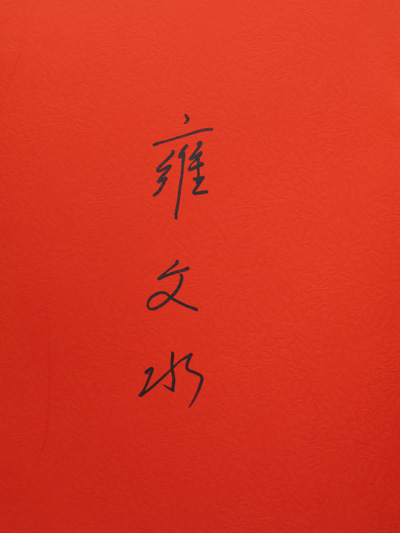 雍文冰